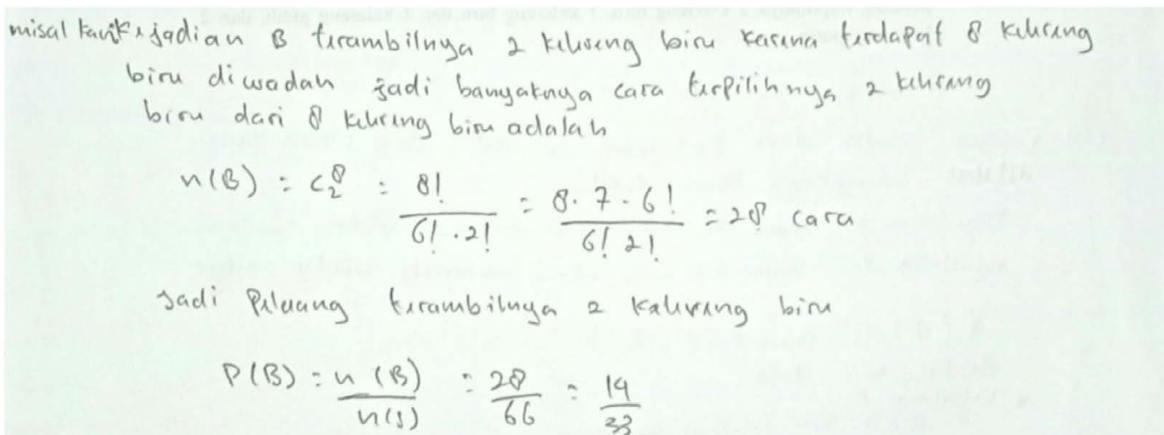 misal kejadian B terambilnya 2 kelereng biru karena terdapat 8 kelereng
biru diwadah jadi banyaknya cara terpilihnya 2 kelereng
biru dari 8 kelereng biru adalah
n(B) = C⁸₂ = 8!/(6! . 2!) = (8. 7 . 6!)/(6! 2!) = 28 cara
Jadi Peluang terambilnya 2 kelereng biru
P(B) = n(B)/n(s) = 28/66 = 14/33